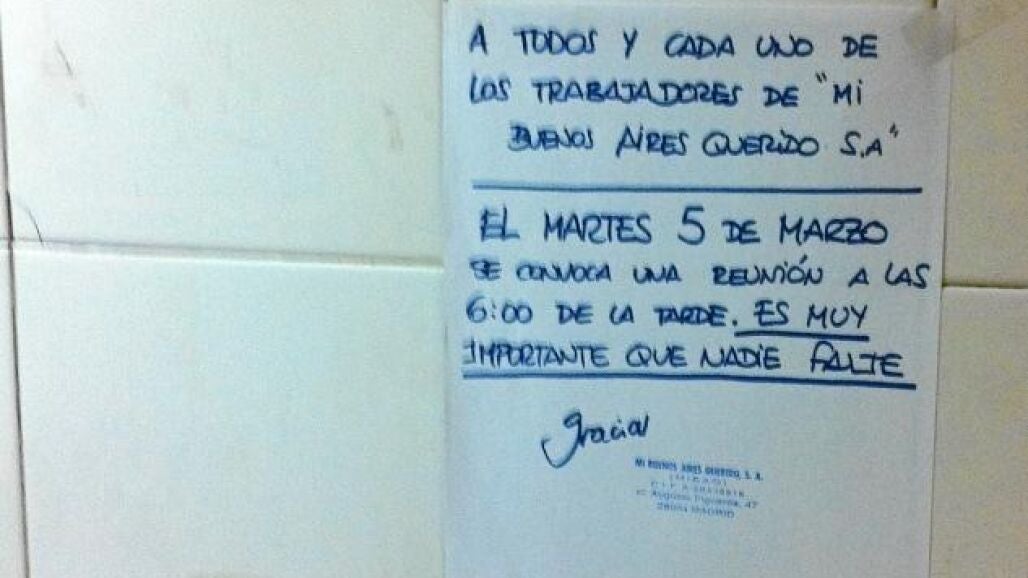 A TODOS Y CADA UNO DE
LOS TRABAJADORES DE "Mi
BUENOS AIRES QUERIDO S.A"
EL MARTES 5 DE MARZO
SE CONVOCA UNA REUNIÓN A LAS
6:00 DE LA TARDE. ES MUY
IMPORTANTE QUE NADIE FALTE
gracias
MI BUENOS AIRES QUERIDO, S. A.
(MIBAQ)
C.I.F.
c/. Augusto Figueroa, 47
28004 MADRID